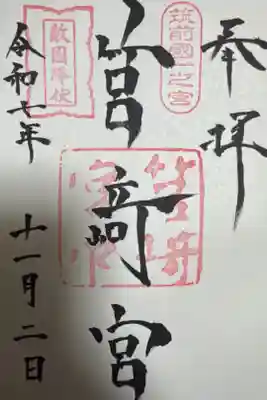 奉拝
筑前國一之宮
筥﨑宮
敵國降伏
令和七年
十一月二日